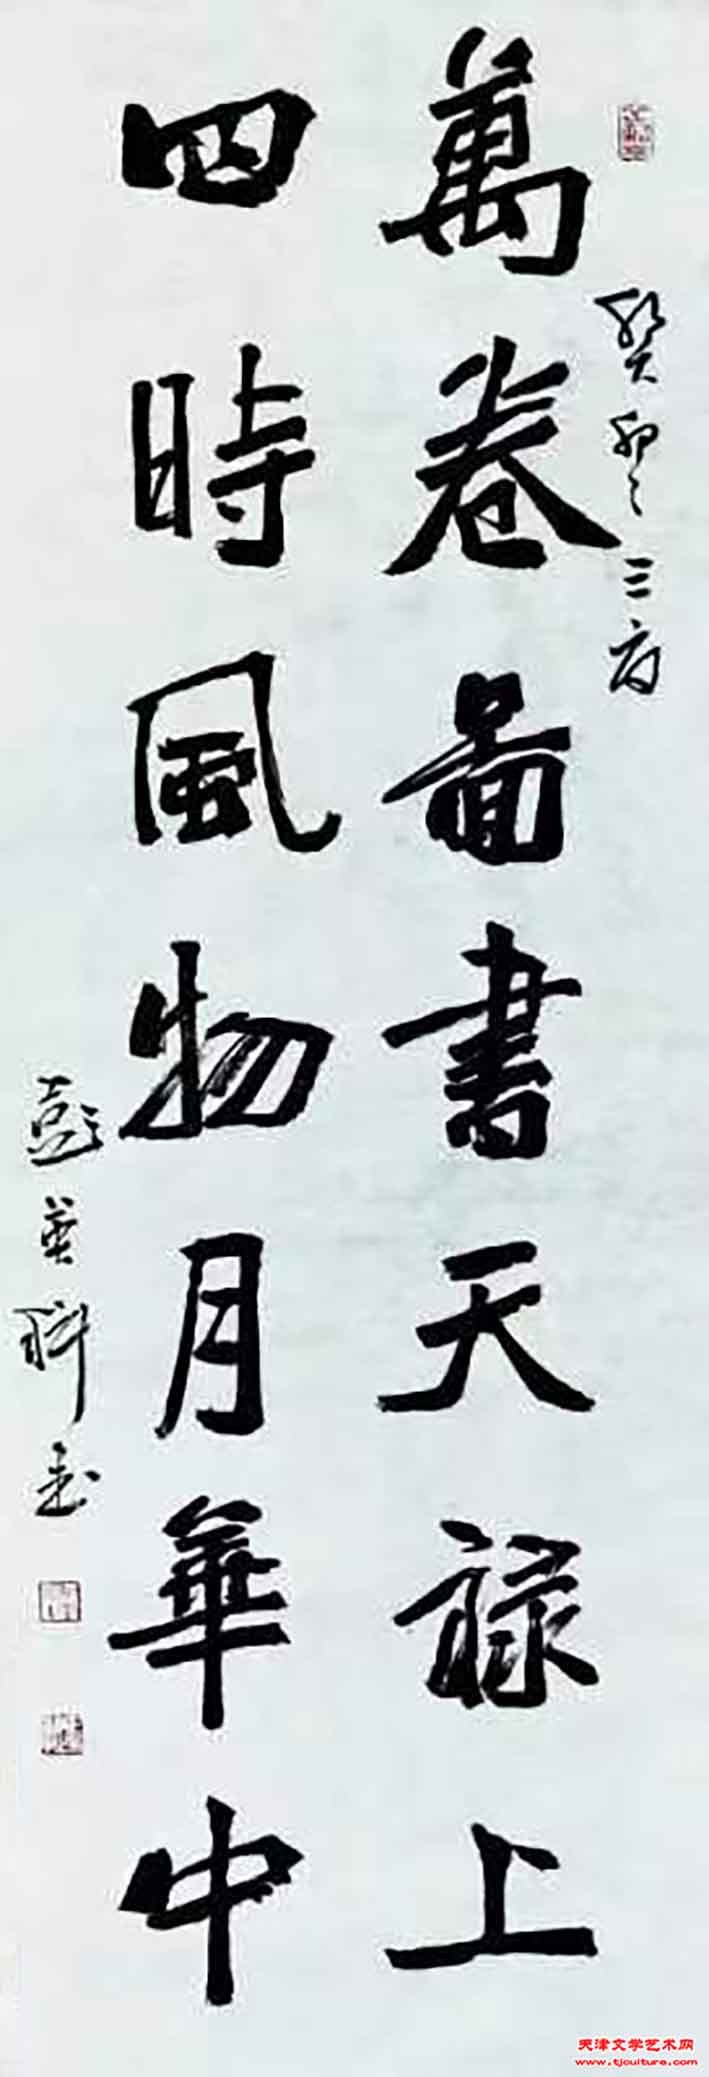 癸卯之三月
萬卷圖書天禄上
四時風物月華中
彭英科書
天津文学艺术网
www.tjculture.com